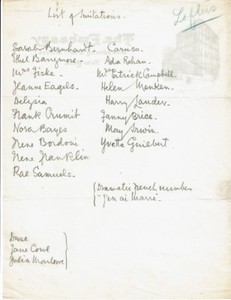 List of Imitations.
The Embassy
Sarah Bernhardt.
Ethel Barrymore.
Mrs Fiske.
Jeanne Eagels.
Delysia
Frank Crumit
Nora Bayes
Irene Bordoni
Irene Franklin
Rae Samuels.
Caruso.
Ada Rehan.
Mrs Patrick Campbell.
Helen Menken.
Harry Lauder.
Fanny Brice.
May Irwin.
Yvette Guilbert
Dramatic French number
"J'en ai marre".
Duse
Jane Cowl
Julia Marlowe